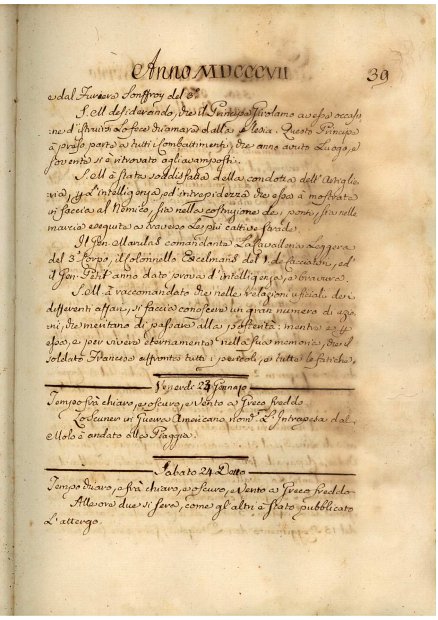 Anno MDCCCVII
39
e dal Furiera Sonffroy del 6º
S. M. desiderando, che il Principe Girolamo avesse occasio
ne d'istruirsi Lo fece chiamare dalla Slesia. Questo Principe
à preso parte a tutti i Combattimenti, che anno avuto Luogo, e
sovente si è ritrovato agli avamposti.
S. M. à stata soddisfatta della condotta dell'Artiglie
ria, per L'intelligenza, ed intrepidezza che essa à mostrata
in faccia al Nemico, sia nella costruzione de' ponti, sia nelle
marcie eseguite a traverso Le più cattive strade.
Il Gen. Marulas comandante La Cavalleria Leggera
del 3º Corpo, il Colonnello Excelmans del 1. de' Cacciatori, ed il
Gen. Petit anno dato prova d'intelligenza, e bravura.
S. M. à raccomandato che nelle relazioni uficiali dei
differenti affari, si faccia conoscere un gran numero di azio
ni, che meritano di passare alla posterità; mentre e per
essa, e per vivere eternamente nella sua memoria, che il
soldato Francese affronta tutti i pericoli, e tutte le fatiche.
Venerdi 23 Gennajo
Tempo frà chiaro, e oscuro, e Vento a Greco freddo
Lo Scuner in Guerra Americano nom.º L'Intrapesa dal
Molo è andato alla Piaggia.
Sabato 24 Detto
Tempo chiaro, e frà chiaro, e oscuro, e Vento a Greco freddo
Alle ore due si sera, come gli altri è stato pubblicato
L'attergo.